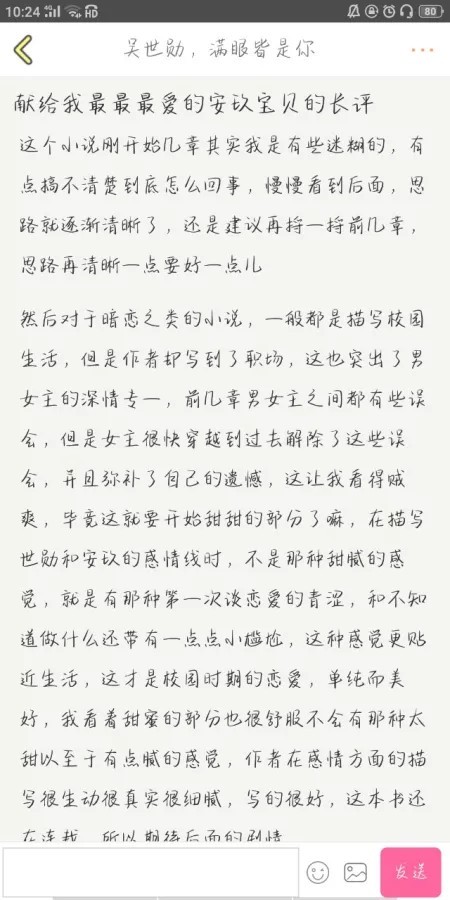 10:24 4G HD 80
吴世勋，满眼皆是你
献给我最最最爱的安玖宝贝的长评
这个小说刚开始几章其实我是有些迷糊的，有
点搞不清楚到底怎么回事，慢慢看到后面，思
路就逐渐清晰了，还是建议再捋一捋前几章，
思路再清晰一点要好一点儿
然后对于暗恋之类的小说，一般都是描写校园
生活，但是作者却写到了职场，这也突出了男
女主的深情专一，前几章男女主之间都有些误
会，但是女主很快穿越到过去解除了这些误
会，并且弥补了自己的遗憾，这让我看得贼
爽，毕竟这就要开始甜甜的部分了嘛，在描写
世勋和安玖的感情线时，不是那种甜腻的感
觉，就是有那种第一次谈恋爱的青涩，和不知
道做什么还带有一点点小尴尬，这种感觉更贴
近生活，这才是校园时期的恋爱，单纯而美
好，我看着甜蜜的部分也很舒服不会有那种太
甜以至于有点腻的感觉，作者在感情方面的描
写很生动很真实很细腻，写的很好，这本书还
在连载，所以期待后面的剧情
发送